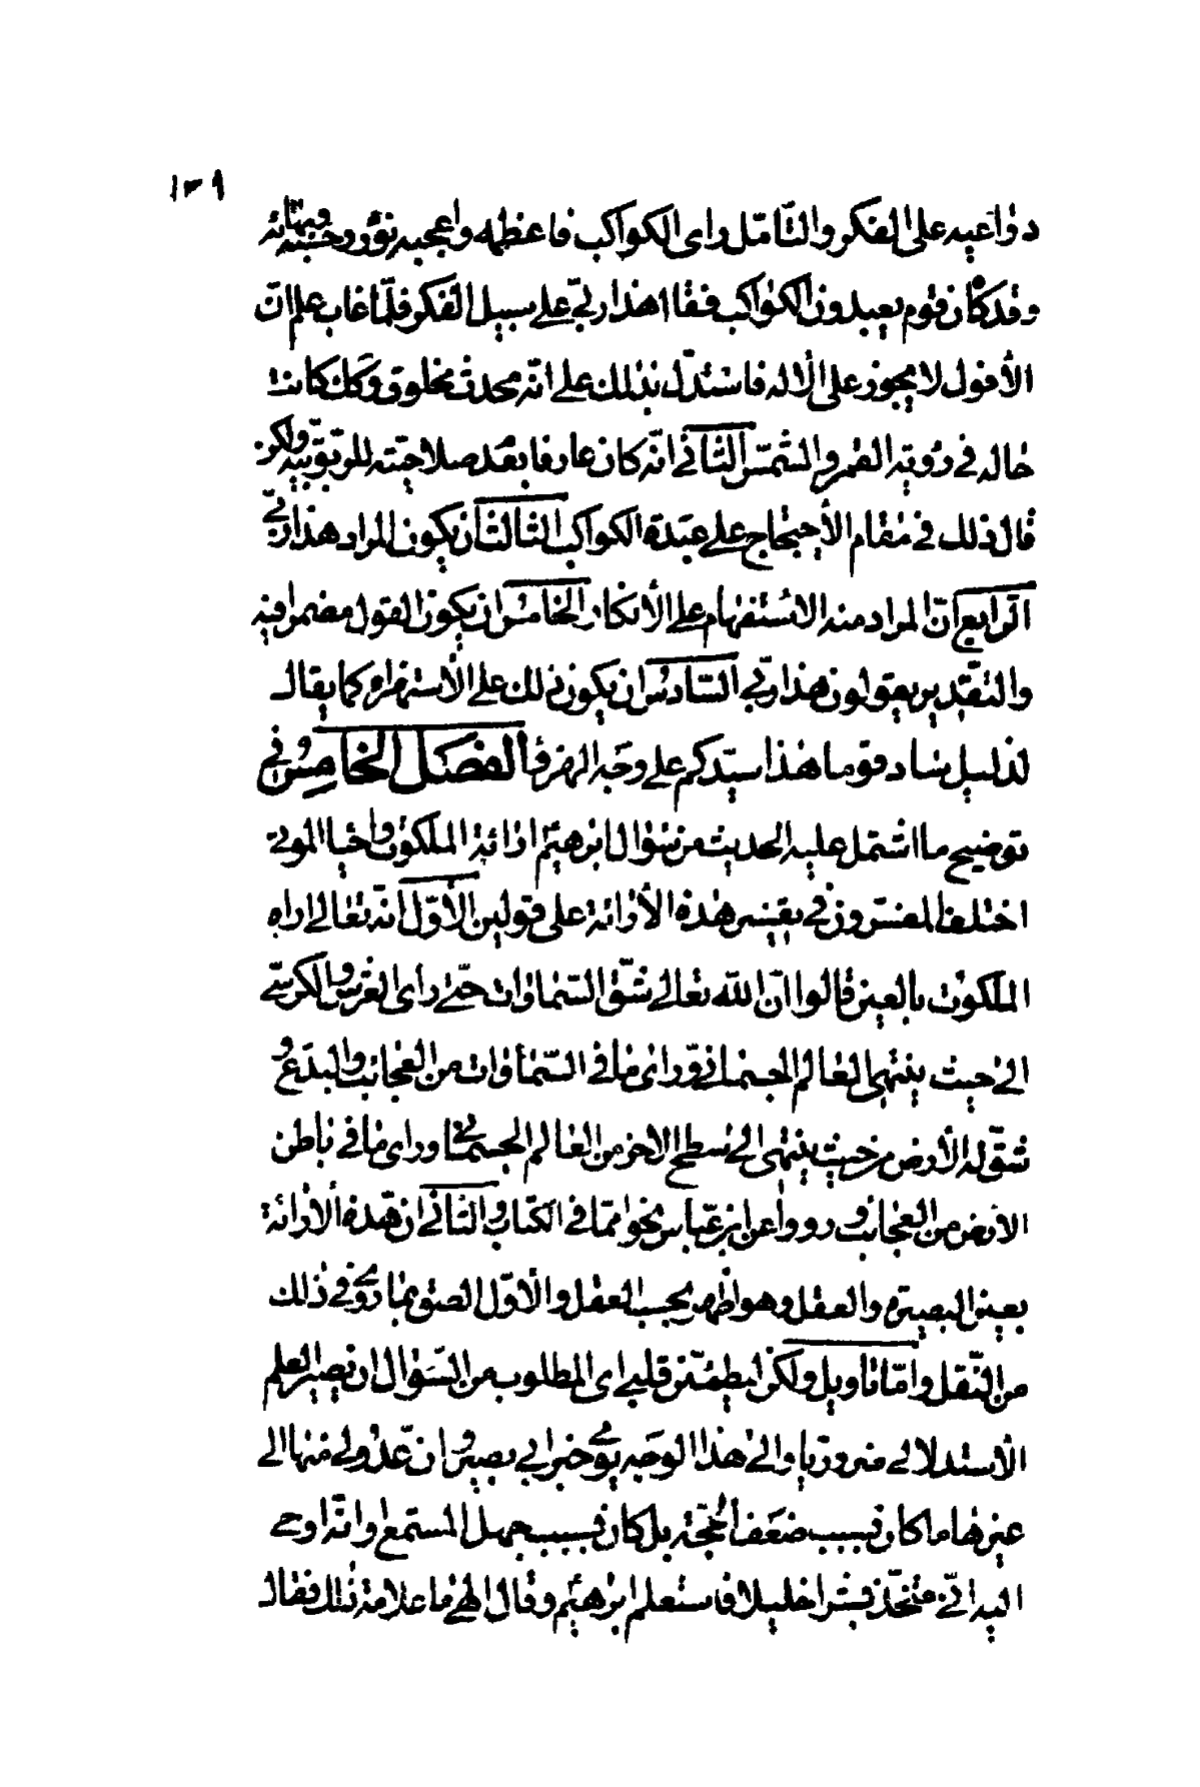 ١٣٩
دواعيه على الفكر والتامّل راى الكواكب فاعظمه واعجبه نوره وحسنه وبهائه
وقد كان قوم يعبدون الكواكب فقال هذا ربّي على سبيل الفكر فلمّا غاب علم انّ
الأفول لا يجوز على الاله فاستدّل بذلك على انّه محدث مخلوق وكذلك كانت
حاله في رؤية القمر والشمس الثاني انّه كان عارفا بعدم صلاحيته للربوبية ولكن
قال ذلك في مقام الأحتجاج على عبدة الكواكب الثالث ان يكون المراد هذا ربّي
الرابع انّ المراد منه الاستفهام على الأنكار الخامس ان يكون القول مضمرا فيه
والتقدير يقولون هذا ربّي السّادس ان يكون ذلك على الأستهزاء كما يقال
لذليل ساد قوما هذا سيّدكم على وجه الهزء الفصل الخامس في
توضيح ما اشتمل عليه الحديث من سؤال ابرهيم ارائة الملكوت واحياء الموتى
اختلف المفسرون في تفسير هذه الأرائة على قولين الأوّل انّه تعالى اراه
الملكوت بالعين قالوا انّ اللّه تعالى شقّ السّماوات حتّى راى العرش والكرسي
الى حيث ينتهى العالم الجسمانى وراى ما في السّماوات من العجائب والبدع و
شقّ له الأرض من حيث ينتهى الى سطح الاخر من العالم الجسماني وراى ما في باطن
الأرض من العجائب ورووا عن ابن عبّاس نحوا ممّا في الكتاب والثاني ان هذه الأرائة
بعين البصيرة والعقل وهو اظهر بحسب العقل والأوّل الصق بما روى في ذلك
من النّقل وامّا تاويل ولكن ليطمئنّ قلبي اى المطلوب من السّؤال ان يصير العلم
الأستدلالى ضروريا والى هذا الوجه يومي خبر ابي بصير وانّ عدولي منها الى
غيرها ما كان بسبب ضعف الحجّة بل كان بسبب جهل المستمع او انّه اوحى
اليه انّي متّخذ بشرا خليلا فاستعلم ابرهيم وقال الهي ما علامة ذلك فقال